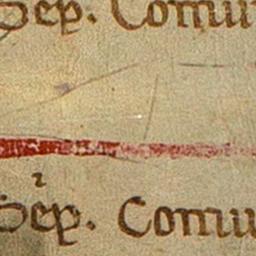 Sep. Comu
Sep. Comu